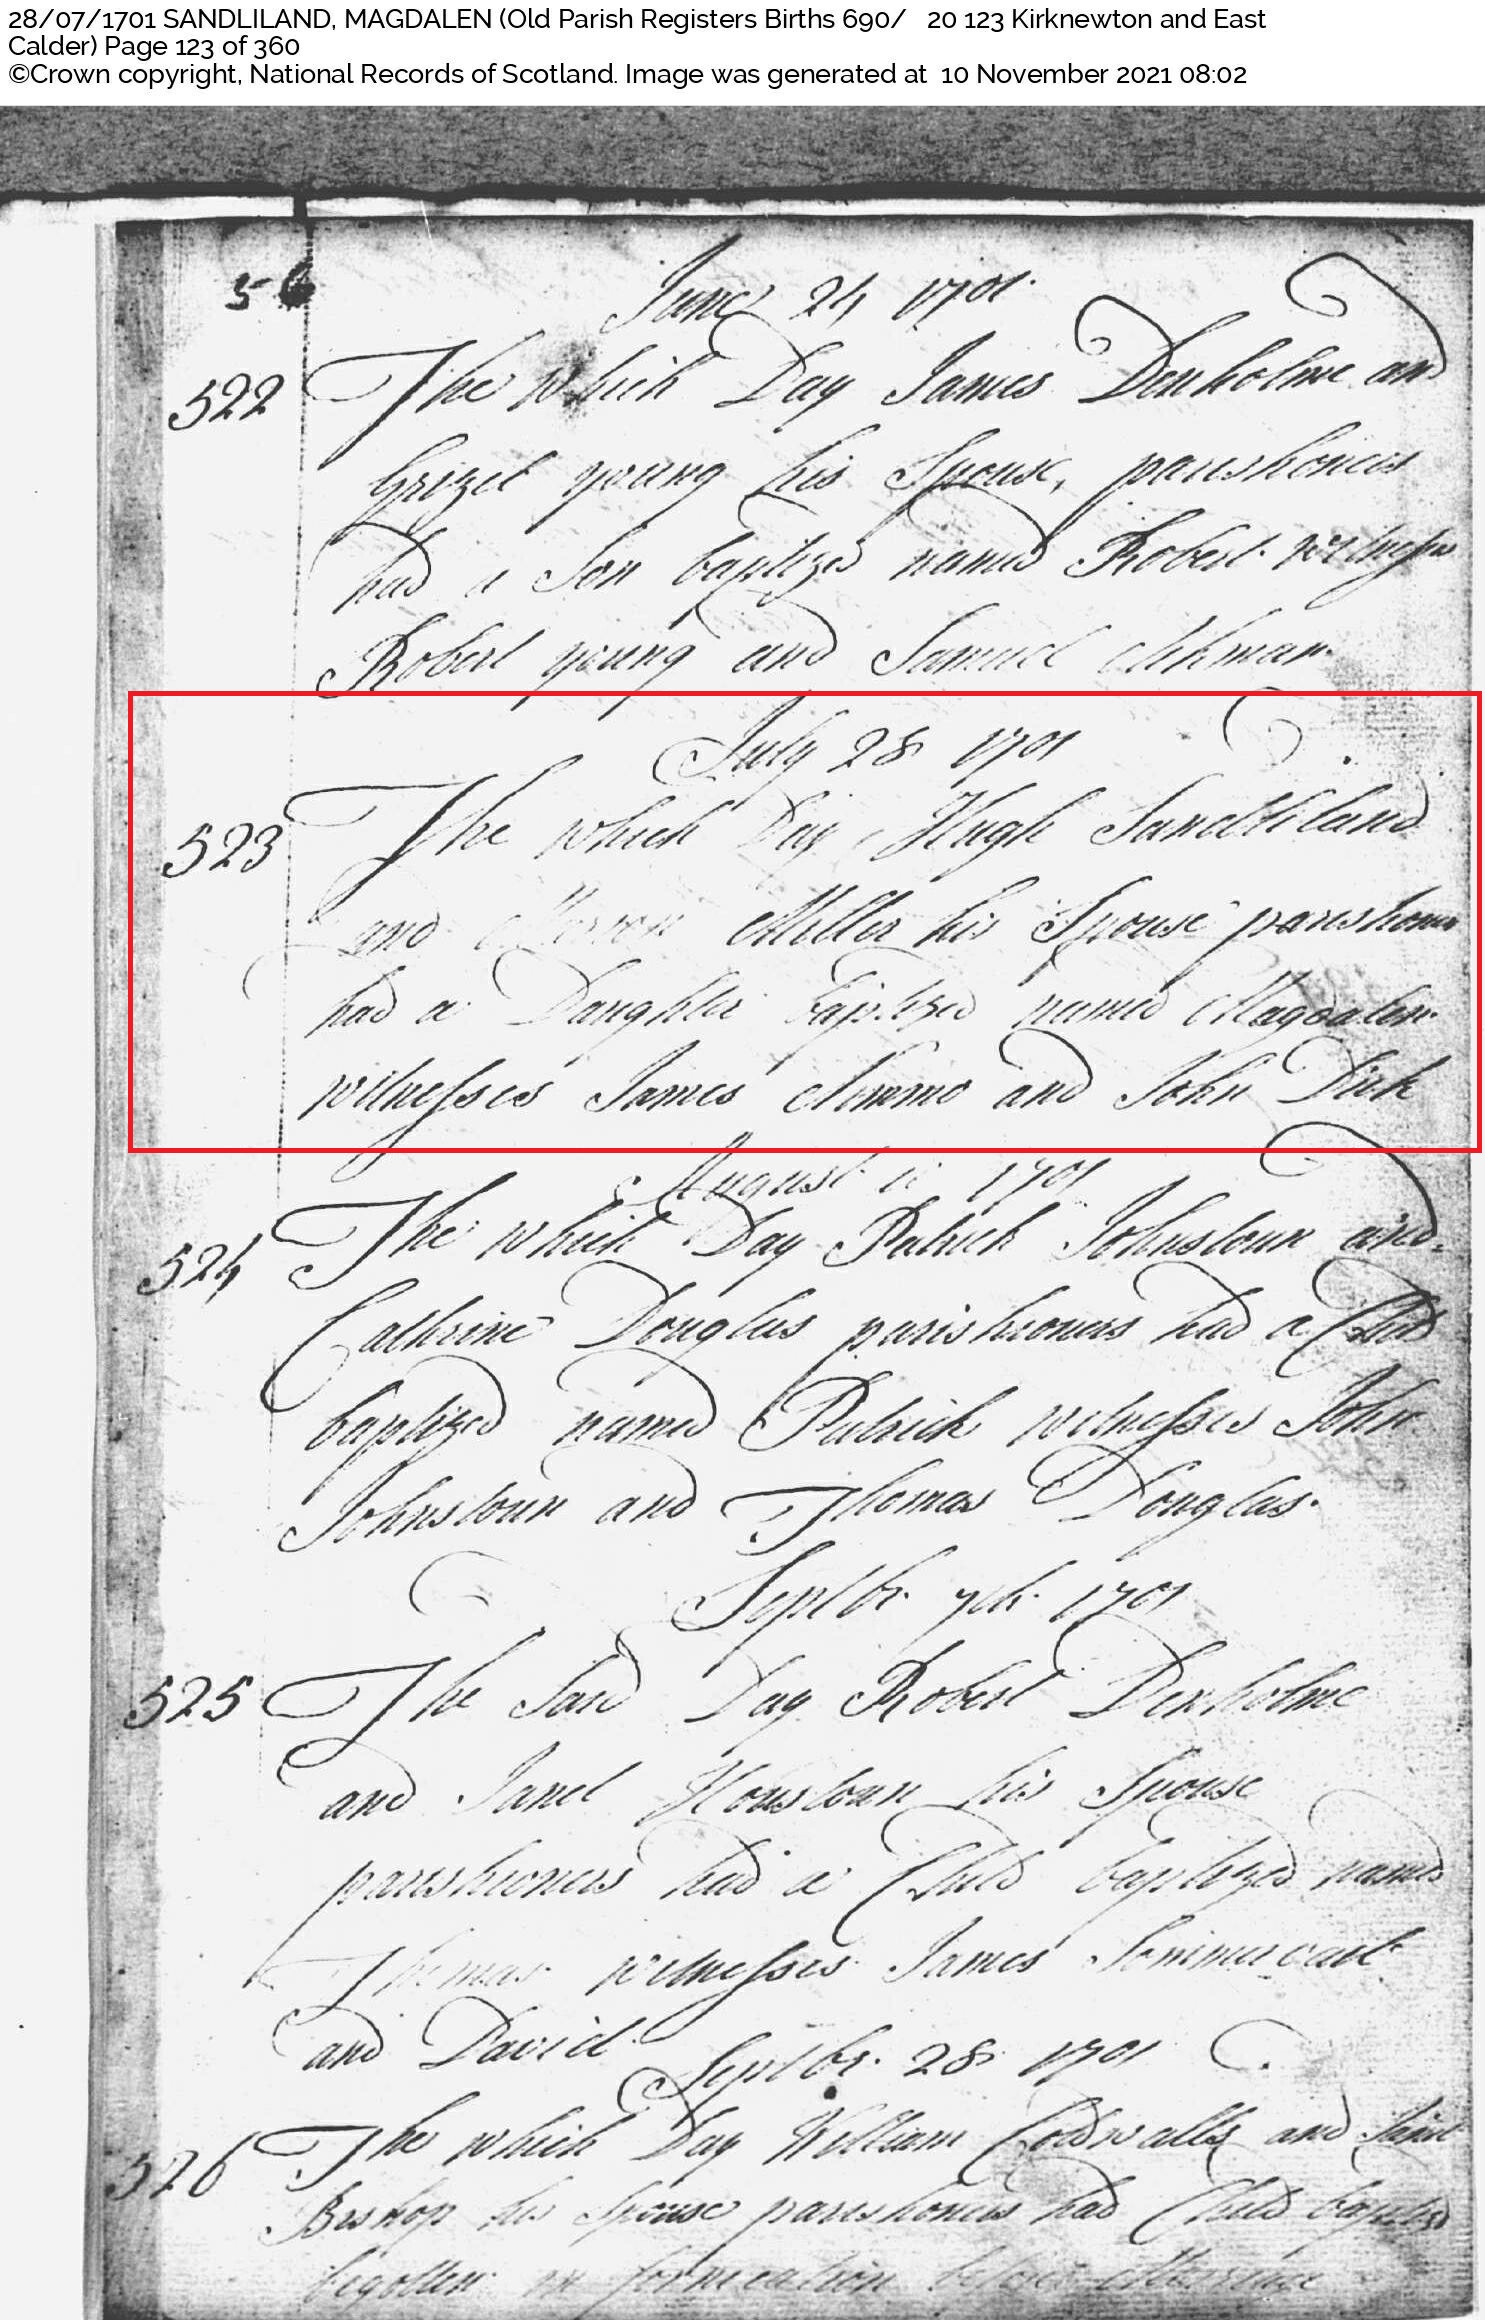 28/07/1701 SANDLILAND, MAGDALEN (Old Parish Registers Births 690/ 20 123 Kirknewton and East
Calder) Page 123 of 360
©Crown copyright, National Records of Scotland. Image was generated at 10 November 2021 08:02
June 24 1701
522 The which Day James Denholme and
Grizel young his Spouse, parishoners
had a Son baptized named Robert witnesses
Robert young and Samuel
July 28 1701
523 The which Day Hugh Sandliland
and Miller his Spouse parishoners
had a Daughter baptized named Magdalen
witnesses James Nimmo and John Dick
August 1701
524 The which Day Patrick Johnstoun and
Cathrine Douglas parishioners had a Child
baptized named Patrick witnesses John
Johnstoun and Thomas Douglas.
Septbr. 7th. 1701
525 The Said Day Robert Denholme
and Janet Houstoun his Spouse
parishioners had a Child baptized named
Thomas witnesses James
and David
Septbr. 28 1701
526 The which Day William and
Bishop his Spouse parishoners had Child baptized
begotten in fornication before Marriage